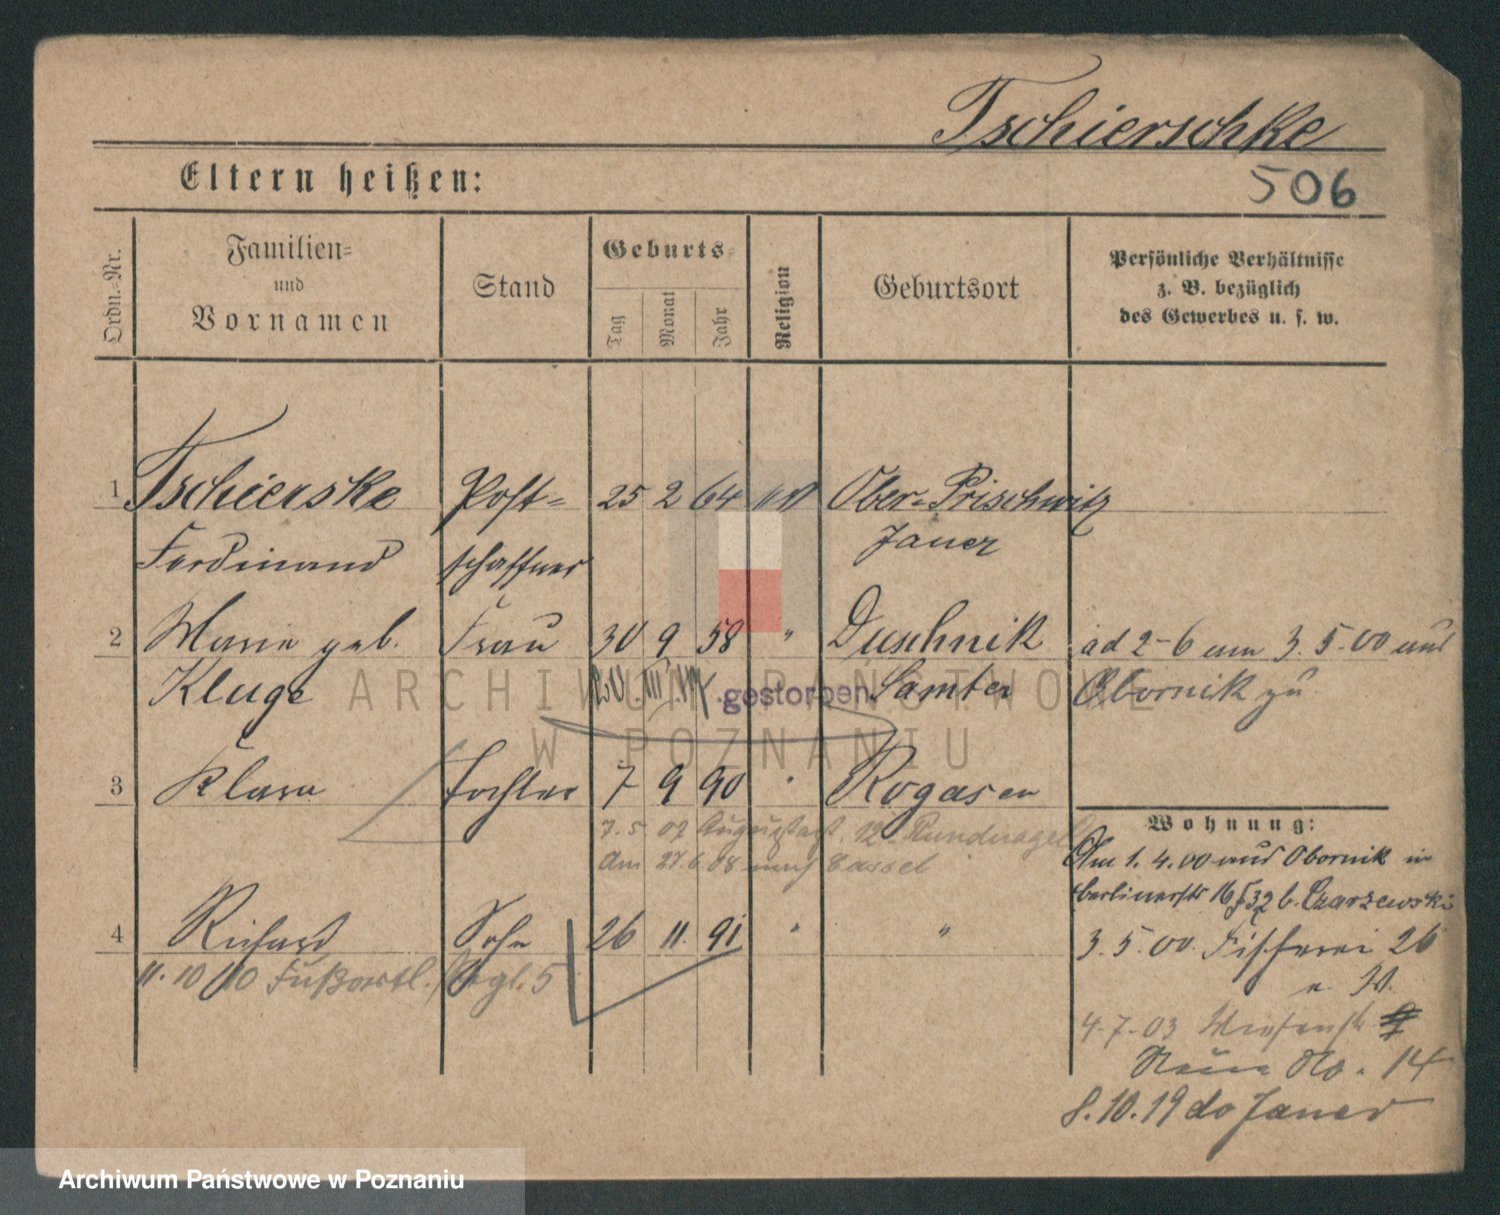 Tschierschke
Eltern heißen:
506
Ordn.-Nr.
Familien-
und
Vornamen
Stand
Geburts-
Tag
Monat
Jahr
Religion
Geburtsort
Persönliche Verhältnisse
z. B. bezüglich
des Gewerbes u. s. w.
1 Tschierske Post- 25 2 64 Ober-Prischwitz
Ferdinand schaffner Jauer
2 Marie geb. Frau 30 9 58 " Duschnik ad 2-6 am 3.5.00 aus
Kluge gestorben. Samter Obornik zu
3 Klara Tochter 7 9 90 " Rogasen
7.5.07 12
am 27.6.08 nach Cassel
Wohnung:
Am 1.4.00 aus Obornik in
Berlinerstr 16 b. Czarzewski
4 Richard Sohn 26 11. 91 " " 3.5.00. Fischerei 26
11.10.10 Fußartl. Rgl. 5
4.7.03
No. 14
8.10.19 do Jauer
ARCHIWUM PAŃSTWOWE
W POZNANIU
Archiwum Państwowe w Poznaniu